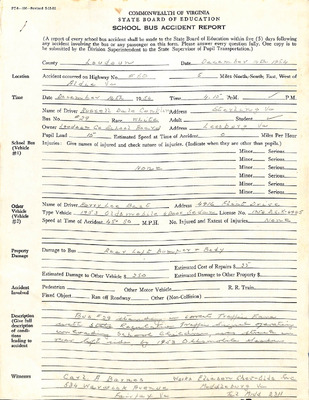 COMMONWEALTH OF VIRGINIA
STATE BOARD OF EDUCATION
SCHOOL BUS ACCIDENT REPORT
(A report of every school bus accident shall be made to the State Board of Education within five (5) days following any accident involving the bus or any passenger on this form. Please answer every question fully. One copy is to be submitted by the Division Superintendent to the State Supervisor of Pupil Transportation.)
County Loudoun Date December 19th 1954
Location Accident occurred on Highway No. #50 5 Miles North, South, East, West of
Aldie Va
Time Date December 1954 Time 4:15 P.M.
Name of Driver Address Leesburg Va
School Bus (Vehicle #1)
Bus No. #29 Race White Adult Student
Owner Loudoun Co School Board Address Leesburg Va
Pupil Load 15 Estimated Speed at Time of Accident 0 Miles Per Hour
Injuries: Give names of injured and check nature of injuries. (Indicate when any are other than pupils.)
Minor Serious
Minor Serious
None Minor Serious
Minor Serious
Minor Serious
Minor Serious
Other Vehicle (Vehicle #2)
Name of Driver Address
Type Vehicle 1953 Oldsmobile License No.
Speed at Time of Accident 45-50 M.P.H. No. Injured and Extent of Injuries None
Property Damage
Damage to Bus Rear Left Bumper + Body
Estimated Cost of Repairs $ 75
Estimated Damage to Other Vehicle $ 250 Estimated Damage to Other Property $
Accident Involved
Pedestrian Other Motor Vehicle R. R. Train
Fixed Object Ran off Roadway Other (Non-Collision)
Description (Give full description of conditions leading to accident
Bus #29 standing in correct Traffic Lane
with State Regulation Traffic Signal operating
School Children was struck in
rear left side by 1953 Oldsmobile Sedan
Witnesses
Carl R Barnes
534 Avenue Middleburg Va
Fairfax Va